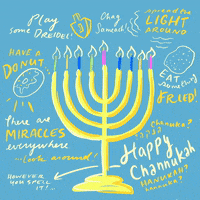 Play
some DREIDEL!
Chag
Sameach!
spread the
LIGHT
AROUND
HAVE A
DONUT
EAT
something
FRIED!
there are
MIRACLES
everywhere
...look around!
Happy
Channukah
HANUKAH?
HOWEVER
YOU SPELL
IT!..